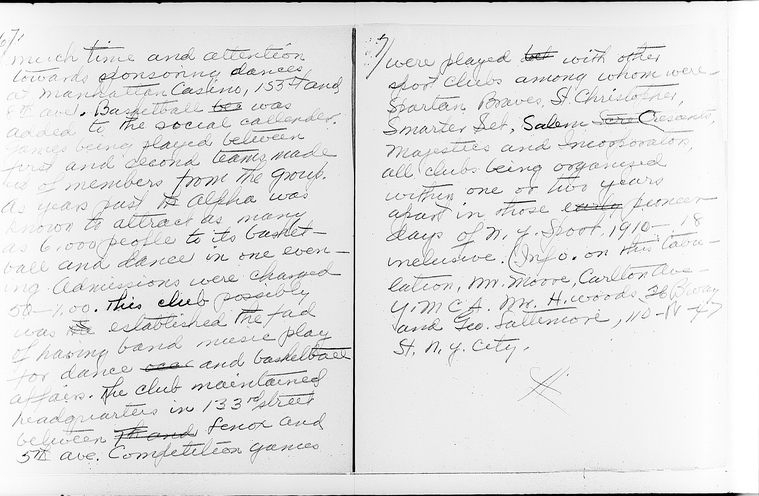 6/
much time and attention
towards sponsoring dances,
at Manhattan Casino, 155th and
8th ave. Basketball bes was
added to the social callender.
Games being played between
first and second teams, made
up of members from the group.
As years past the Alpha was
known to attract as many
as 6.000 people to its basket-
ball and dance in one even-
ing. Admissions were charged
50-1.00. This club possibly
was the established the fad
of having band music play
for dance and basketball
affairs. The club maintained
headquarters in 133rd street
between 7th and Lenox and
5th ave. Competition games
7/ were played bet with other
sport clubs among whom were-
Spartan Braves, St. Christopher,
Smarter Set, Salem Cresants,
Majestics and Incorporators,
all clubs being organized
within one or two years
apart in those early pioneer
days of N.Y. Sport. 1910-18
inclusive. (Info. on this Tabu-
lation, Mr. Moore, Carlton Ave-
Y.M.C.A. Mr. H. Woods, B'way
and Geo. Lattimore, 110-W-47
St. N.Y. City.